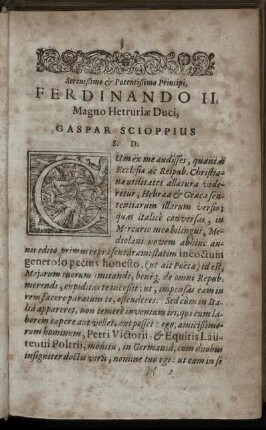 3
Serenissimo & Potentissimo Principi,
FERDINANDO II.
Magno Hetruriæ Duci,
GASPAR SCIOPPIUS
S. D.
CUm ex me audisses, quantæ
Ecclesiæ ac Reipub. Christia-
na utilitates allatura vide-
retur, Hebræ & Græcæ sen-
tentiarum illarum versio,
quas italicè conversas, in
Mercurio meo bilingui, Me-
diolani novem abhinc an-
nis edito primus repræsentaram: statim incoctum
generoso pectus honesto, (ut ait Poëta) id est,
Majorum tuorum imitandi, beneq. de omni Repub.
merendi, cupiditas te incessit: ut, impensas eam in
rem facere paratum te, ostenderes. Sed cum in Ita-
lia appareret, non temerè inventum iri, qui eum la-
borem capere aut vellet, aut posset: ego, amicissimo-
rum hominum, Petri Victorii & Equitis Lau-
rentii Poltrii, monitu, in Germaniâ, cum duobus
insigniter doctis viris, nomine tuo egi: ut eam in se
2